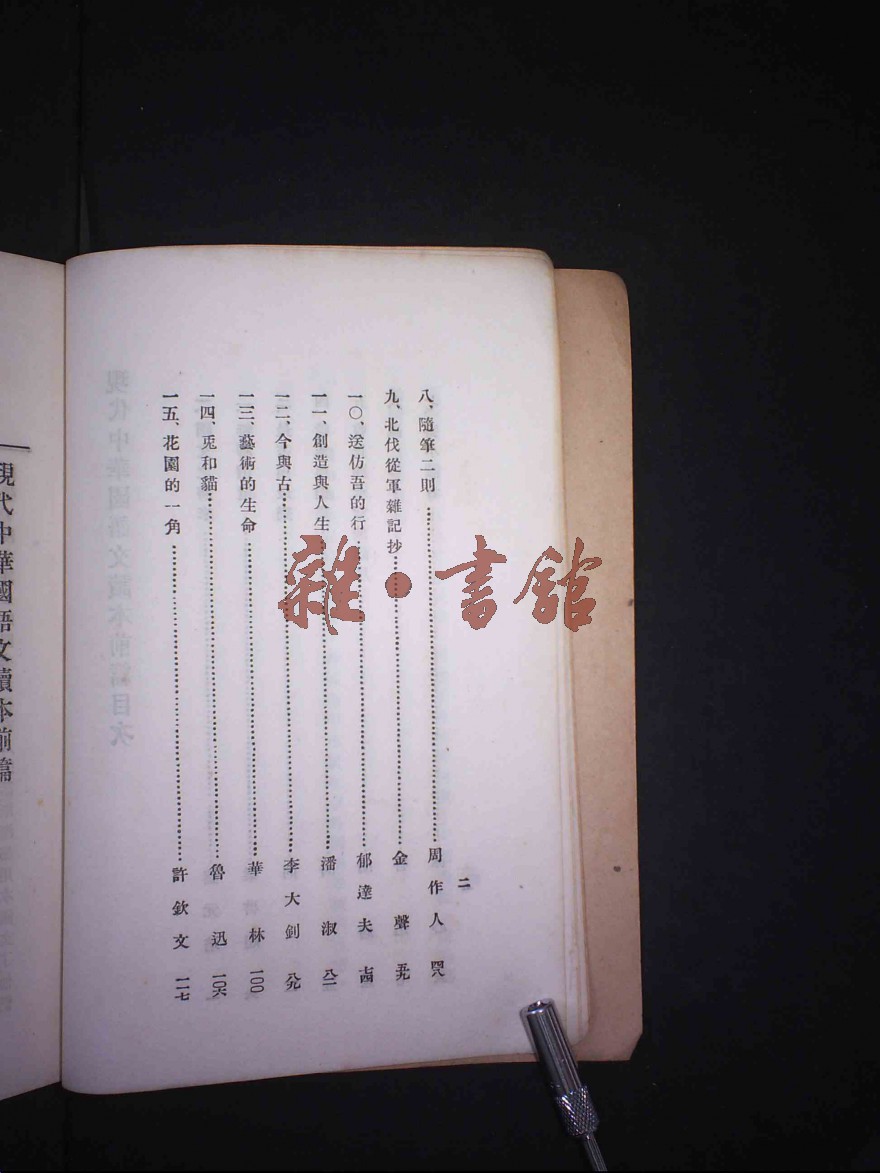 二
八、隨筆二則……周作人 四八
九、北伐從軍雜記抄……金聲 五九
一〇、送仿吾的行……郁達夫 七四
一一、創造與人生……潘淑 八二
一二、今與古……李大釗 八九
一三、藝術的生命……華林 一〇〇
一四、兎和貓……魯迅 一〇六
一五、花園的一角……許欽文 一一七
現代中華國語文讀本前篇
現代中華國語文讀本前篇目次
雜·書館